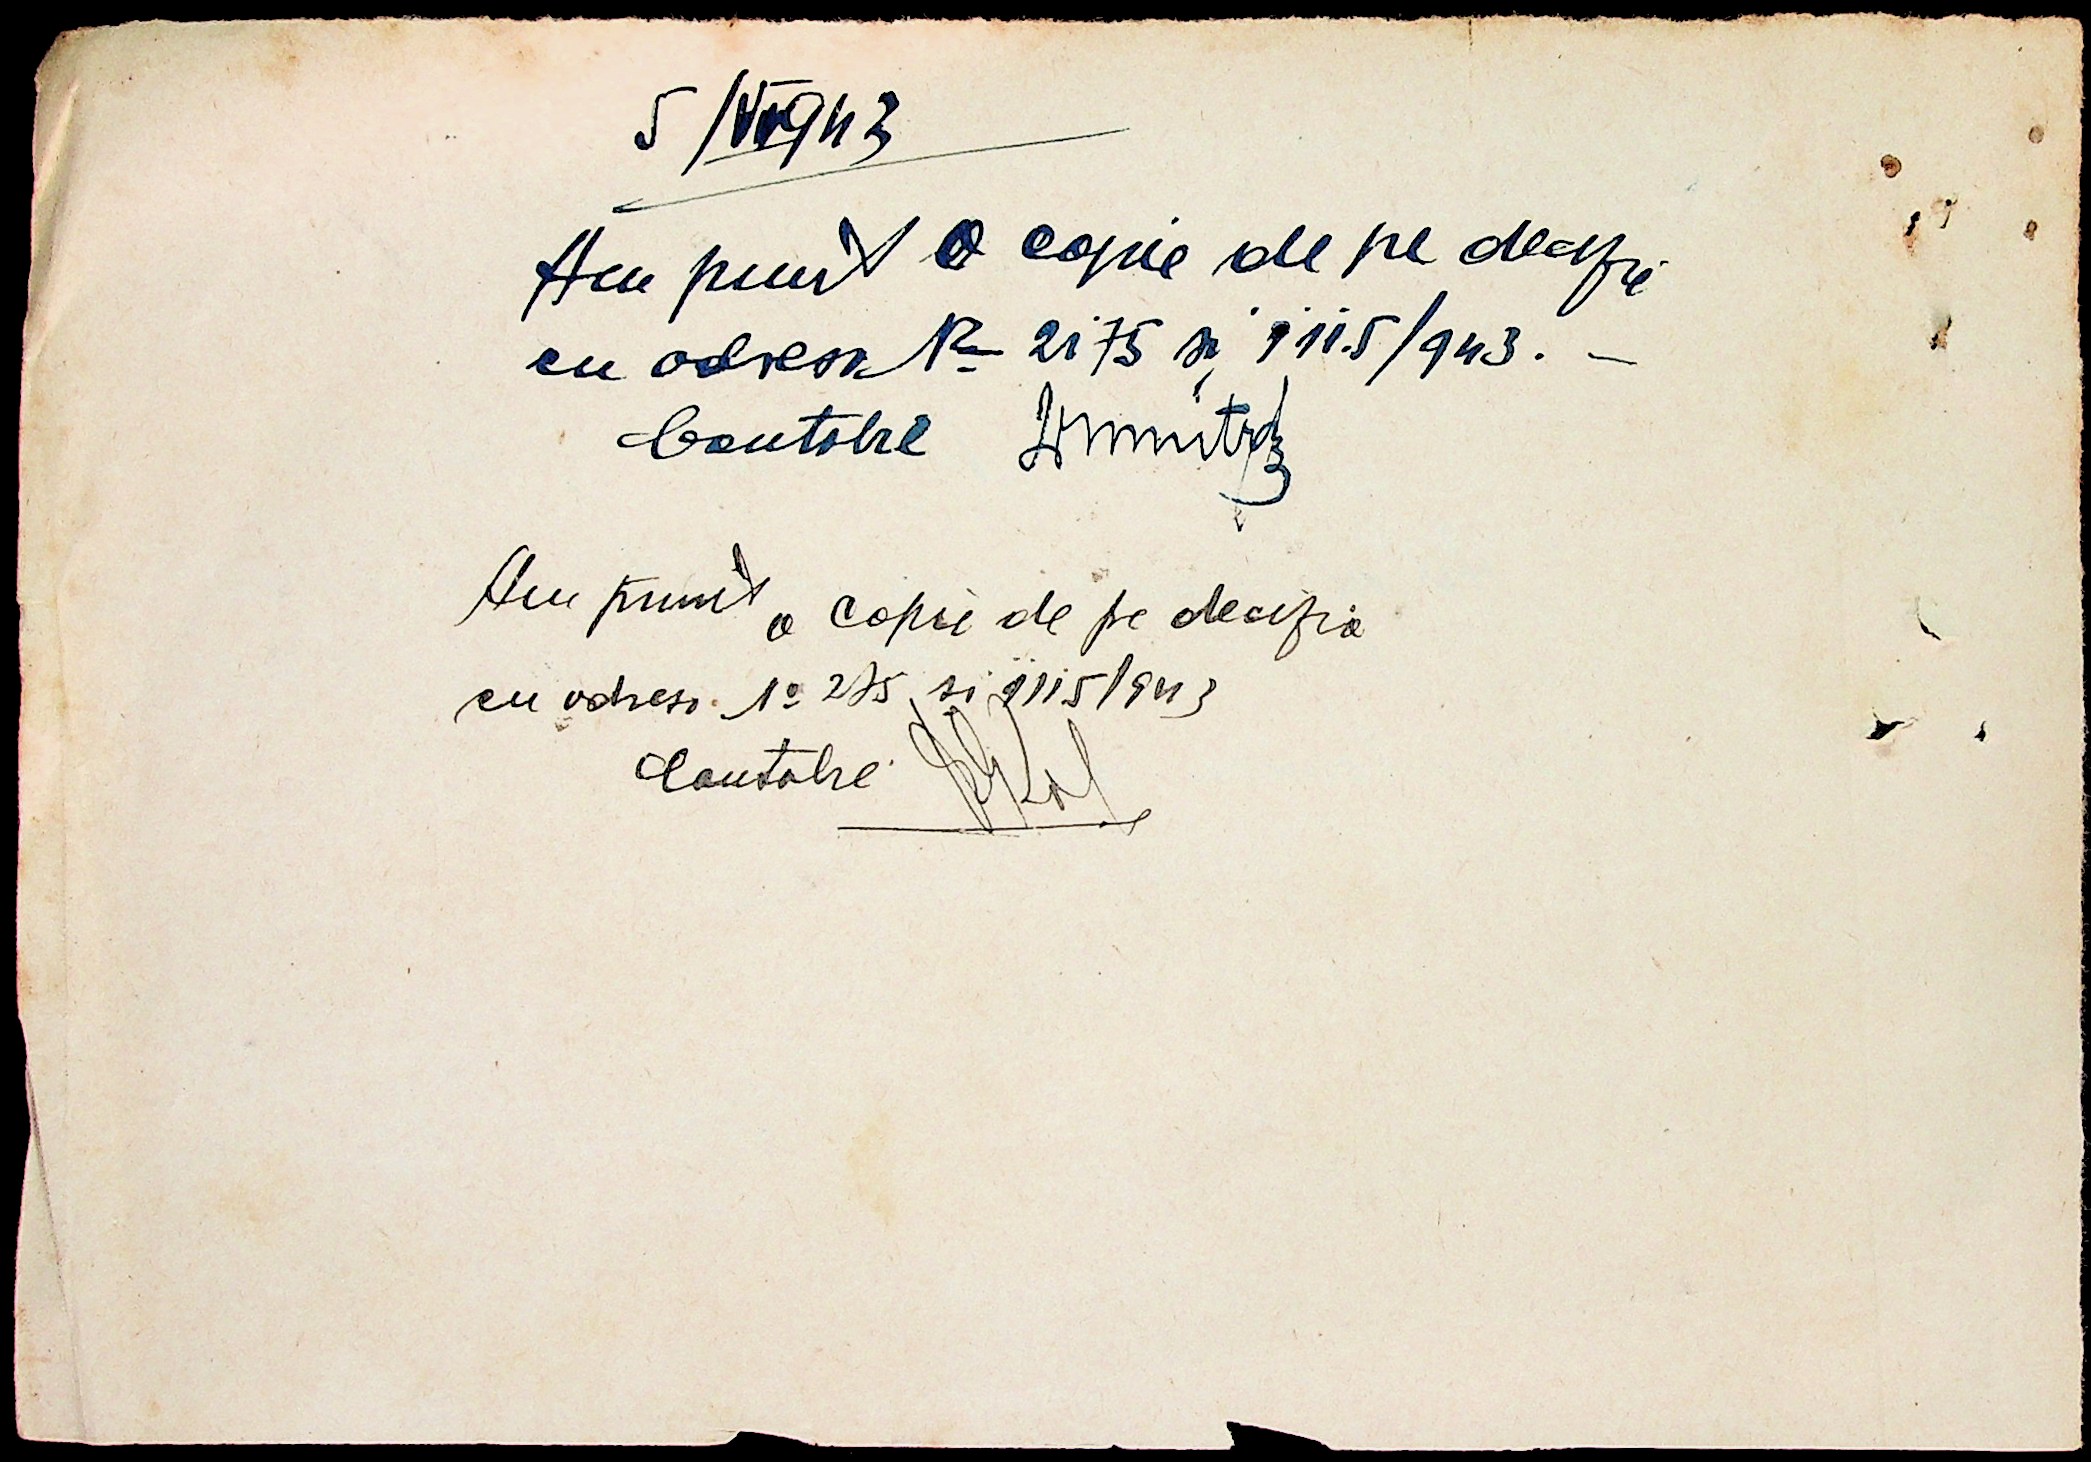 5/VI 943
Am primit o copie de pe decizie
cu adresa No 2175 si 9115/943. -
Contabil
Am primit o copie de pe decizia
cu adresa No 275 si 9115/943
Contabil